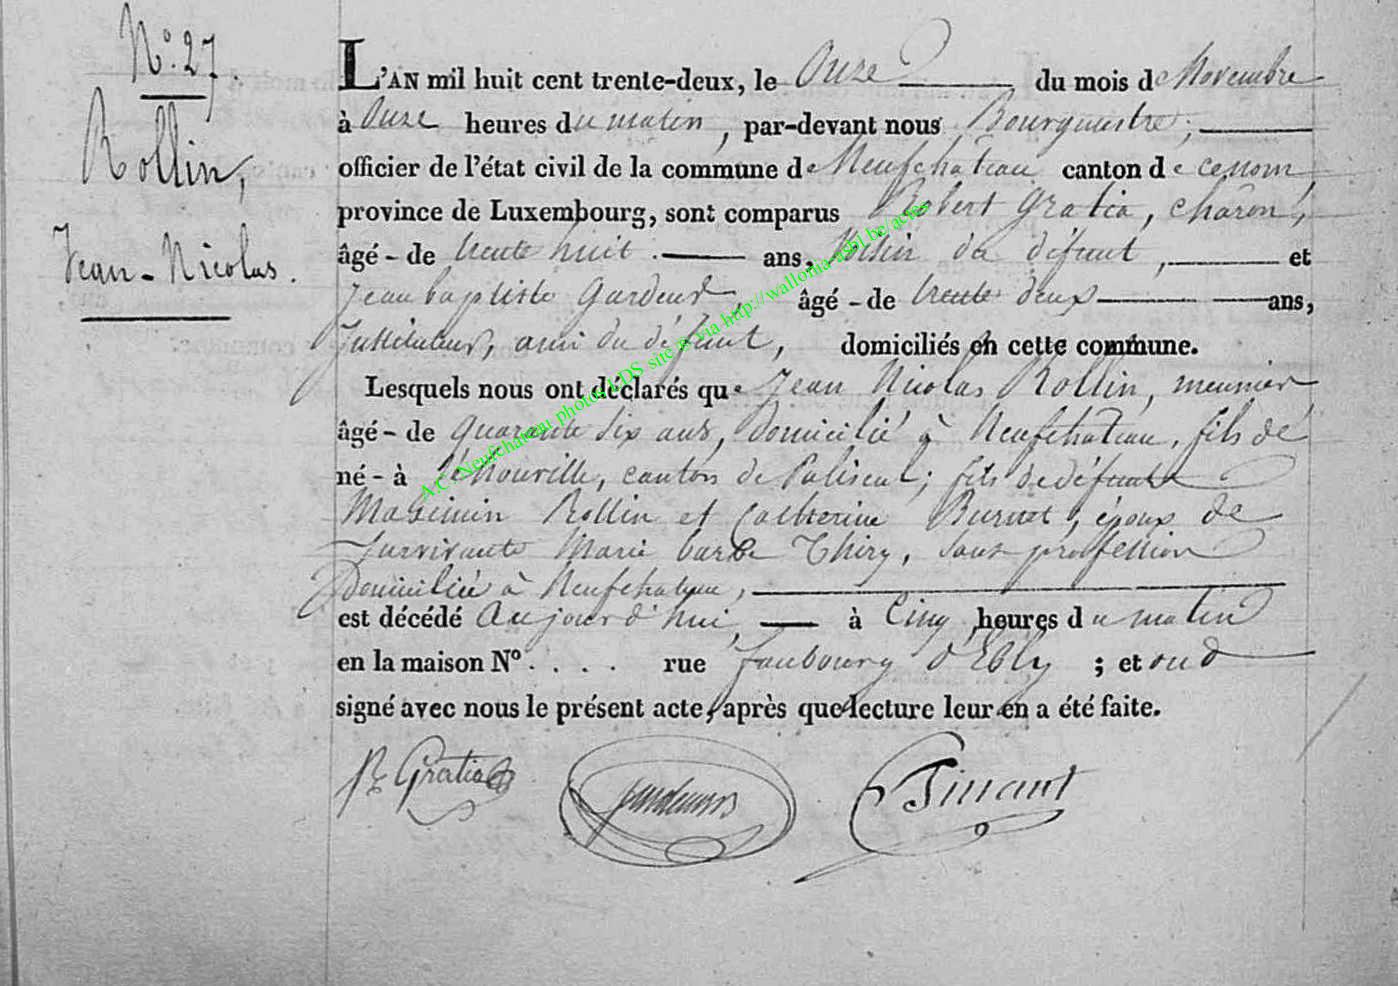 N° 27.
Rollin,
Jean-Nicolas.
L'AN mil huit cent trente-deux, le Onze du mois de Novembre
à Onze heures du matin, par-devant nous Bourgmestre,
officier de l'état civil de la commune de Neufchateau canton de ce nom,
province de Luxembourg, sont comparus Robert Gratia, charon,
âgé-de trente huit ans, voisin du défunt, et
Jean baptiste Gardeur, âgé-de trente deux ans,
Instituteur, ami du défunt, domiciliés en cette commune.
Lesquels nous ont déclarés que Jean Nicolas Rollin, meunier
âgé-de quarante six ans, domicilié à Neufchateau, fils de
né-à canton de Paliseul; fils de défunts
Maximin Rollin et Catherine Burnet, époux de
survivante Marie barbe Thiry, sans profession
Domiciliée à Neufchateau,
est décédé Aujourd'hui, à Cinq heures du matin
en la maison N° . . . . rue faubourg d'Ebly ; et ont
signé avec nous le présent acte, après que lecture leur en a été faite.
R Gratia
A.C. Neufchateau photos LDS site & via http://wallonia-asbl.be/actes